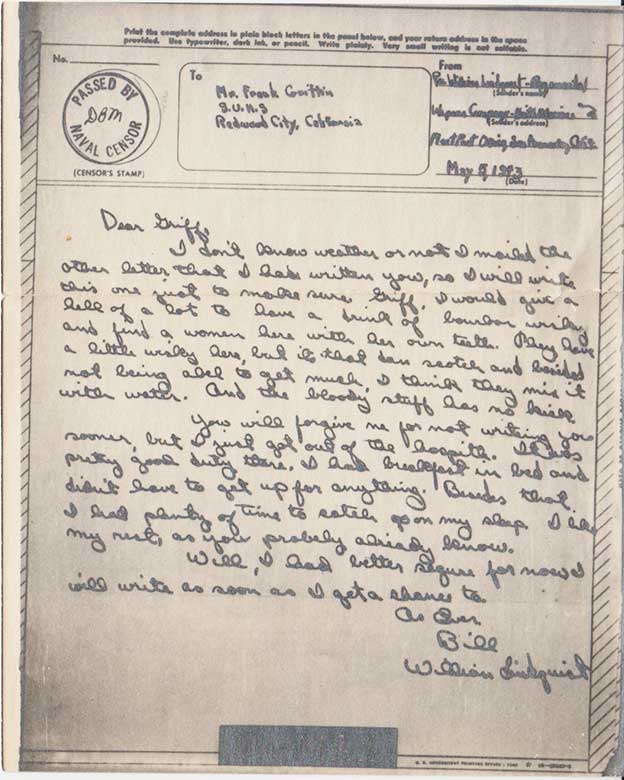 Print the complete address in plain block letters in the panel below, and your return address in the space
provided. Use typewriter, dark ink, or pencil. Write plainly. Very small writing is not suitable.
No.
PASSED BY
DBM
NAVAL CENSOR
(CENSOR'S STAMP)
To
Mr. Frank Griffin
S.U.H.S
Redwood City, California
From
(Sender's name)
Weapons Company
(Sender's address)
Fleet Post Office, San Francisco, Calif.
May 5, 1943
(Date)
Dear Griff,
I don't know weather or not I mailed the
other letter that I had written you, so I will write
this one just to make sure. Griff, I would give a
hell of a lot to have a drink of bourbon wisky
and find a women here with her own teeth. They have
a little wisky here, but its that dam scotch and besides
not being abel to get much, I think they mix it
with water. And the bloody stuff has no kick.
You will forgive me for not writing you
sooner, but I just got out of the hospitle. It was
pritty good duty there. I had breakfast in bed and
didn't have to get up for anything. Besides that
I had plenty of time to catch up on my sleep. I like
my rest, as you probely already know.
Will, I had better segure for now I
will write as soon as I get a chance to.
As Ever
Bill
William Lindquist
U. S. GOVERNMENT PRINTING OFFICE